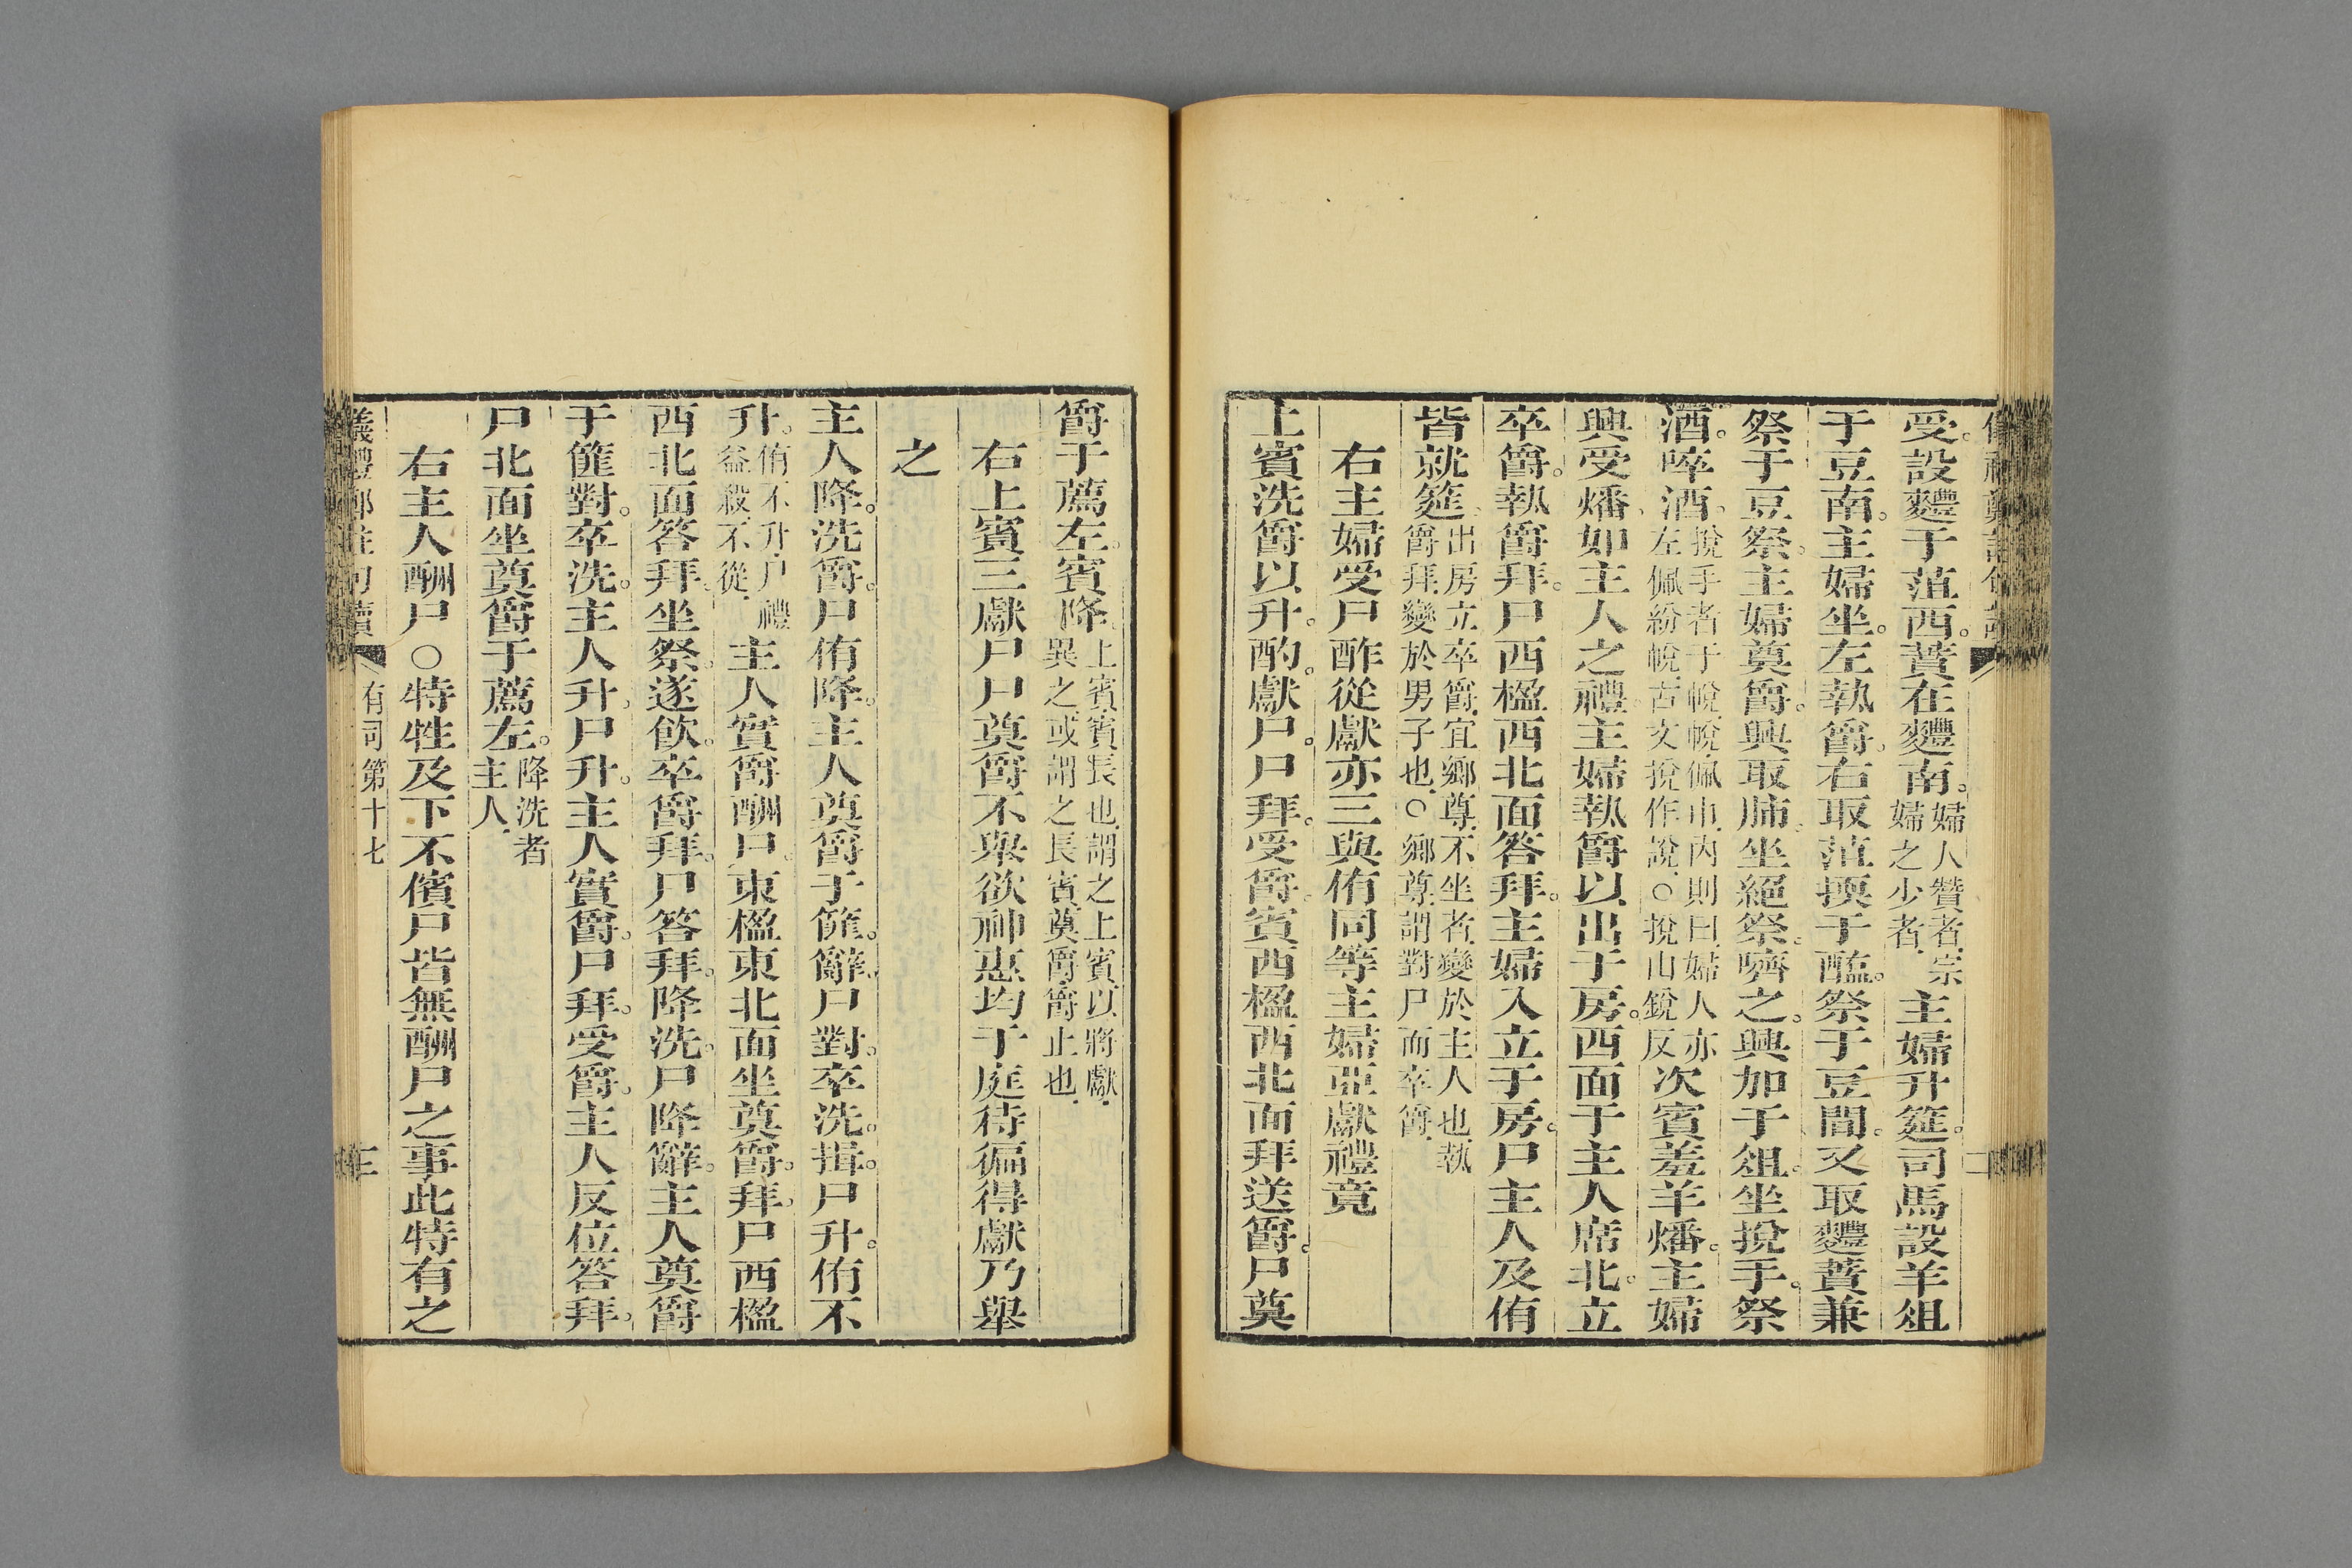 受。設麷于菹西。蕡在麷南。婦人贊者，宗婦之少者。主婦升筵。司馬設羊俎
于豆南。主婦坐。左執爵。右取菹㨎于醢。祭于豆間。又取麷蕡兼
祭于豆祭。主婦奠爵。興取肺。坐絕祭。嚌之。興加于俎。坐挩手。祭
酒。啐酒。挩手者于帨，帨，佩巾，內則曰，婦人亦左佩紛帨，古文挩作說。○挩山銳反次賓羞羊燔。主婦
興受燔，如主人之禮。主婦執爵以出于房。西面于主人席北。立
卒爵。執爵拜。尸西楹西北面答拜。主婦入立于房。尸主人及侑
皆就筵。出房立卒爵，宜鄉尊，不坐者，變於主人也，執爵拜，變於男子也，○鄉尊，謂對尸而卒爵，
右主婦受尸酢從獻亦三與侑同等主婦亞獻禮竟
上賓洗爵以升。酌。獻尸。尸拜。受爵。賓西楹西北面拜送爵。尸奠
爵于薦左。賓降。上賓，賓長也，謂之上賓，以將獻，異之，或謂之長賓，奠爵，爵止也，
右上賓三獻尸尸奠爵不舉欲神惠均于庭待徧得獻乃舉
之
主人降。洗爵。尸侑降。主人奠爵于篚。辭。尸對。卒洗。揖。尸升。侑不
升。侑不升，尸禮益殺，不從，主人實爵酬尸。東楹東北面坐奠爵。拜。尸西楹
西北面答拜。坐祭。遂飲。卒爵拜。尸答拜。降洗。尸降辭。主人奠爵
于篚對。卒洗。主人升。尸升。主人實爵。尸拜。受爵。主人反位答拜。
尸北面坐奠爵于薦左。降洗者主人，
右主人酬尸○特牲及下不儐尸皆無酬尸之事此特有之
儀禮鄭註句讀 有司第十七